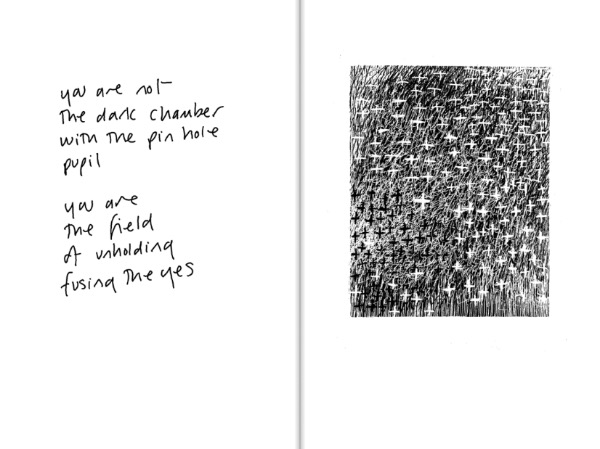 you are not
the dark chamber
with the pin hole
pupil
you are
the field
of unholding
fusing the yes